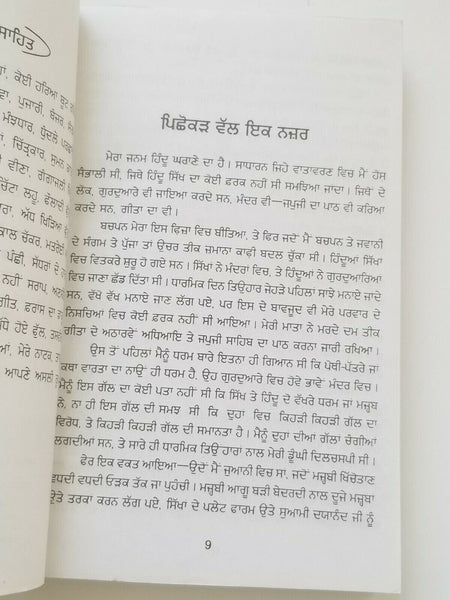 ਸਾਹਿਤ
ਹਾਂ, ਕੋਈ ਹਰਿਆ ਬੂਟ
ਵਾ, ਪੁਜਾਰੀ, ਬੰਜਰ,
ਮੰਝਧਾਰ, ਧੁੰਦਲੇ
ਚਿੱਤ੍ਰਕਾਰ, ਸੁਮਨ
ੀ ਵੀਣਾ, ਗੰਗਾਜਲੀ
ਚਿੱਟਾ ਲਹੂ, ਫੌਲਾਦੀ
ਤਾਰਾ, ਅੱਧ ਖਿੜਿਆ
ਕਾਲ ਚੱਕਰ, ਮਤਰੇਈ
ਪੰਛੀ, ਸੱਧਰਾਂ ਦੇ
ਨਹੀਂ ਸਰਾਪ
ਗੀਤ, ਫਰਾਂਸ ਦਾ
ਧੇ ਹੋਏ ਫੁੱਲ,
ਆਂ. ਮੇਰੇ ਨਾਟਕ,
ਆਪਣੇ ਅਸਲੀ
ਪਿਛੋਕੜ ਵੱਲ ਇਕ ਨਜ਼ਰ
ਮੇਰਾ ਜਨਮ ਹਿੰਦੂ ਘਰਾਣੇ ਦਾ ਹੈ। ਸਾਧਾਰਨ ਜਿਹੇ ਵਾਤਾਵਰਣ ਵਿਚ ਮੈਂ ਹੋਸ਼
ਸੰਭਾਲੀ ਸੀ, ਜਿਥੇ ਹਿੰਦੂ ਸਿੱਖ ਦਾ ਕੋਈ ਫਰਕ ਨਹੀਂ ਸੀ ਸਮਝਿਆ ਜਾਂਦਾ। ਜਿਥੋਂ ਦੇ
ਲੋਕ, ਗੁਰਦੁਆਰੇ ਵੀ ਜਾਇਆ ਕਰਦੇ ਸਨ, ਮੰਦਰ ਵੀ—ਜਪੁਜੀ ਦਾ ਪਾਠ ਵੀ ਕਰਿਆ
ਕਰਦੇ ਸਨ, ਗੀਤਾ ਦਾ ਵੀ।
ਬਚਪਨ ਮੇਰਾ ਇਸ ਫਿਜ਼ਾ ਵਿਚ ਬੀਤਿਆ, ਤੇ ਫਿਰ ਜਦੋਂ ਮੈਂ ਬਚਪਨ ਤੇ ਜਵਾਨੀ
ਦੇ ਸੰਗਮ ਤੇ ਪੁੱਜਾ ਤਾਂ ਉਚਰ ਤੀਕ ਜ਼ਮਾਨਾ ਕਾਫ਼ੀ ਬਦਲ ਚੁੱਕਾ ਸੀ। ਹਿੰਦੂਆਂ ਸਿੱਖਾਂ
ਵਿਚ ਵਿਤਕਰੇ ਸ਼ੁਰੂ ਹੋ ਗਏ ਸਨ। ਸਿੱਖਾਂ ਨੇ ਮੰਦਰਾਂ ਵਿਚ, ਤੇ ਹਿੰਦੂਆਂ ਨੇ ਗੁਰਦੁਆਰਿਆਂ
ਵਿਚ ਜਾਣਾ ਛੱਡ ਦਿੱਤਾ ਸੀ। ਧਾਰਮਿਕ ਦਿਨ ਤਿਉਹਾਰ ਜੇਹੜੇ ਪਹਿਲਾਂ ਸਾਂਝੇ ਮਨਾਏ ਜਾਂਦੇ
ਸਨ, ਵੱਖੋ ਵੱਖ ਮਨਾਏ ਜਾਣ ਲੱਗ ਪਏ, ਪਰ ਇਸ ਦੇ ਬਾਵਜੂਦ ਵੀ ਮੇਰੇ ਪਰਵਾਰ ਦੇ
ਨਿਸ਼ਚਿਆਂ ਵਿਚ ਕੋਈ ਫਰਕ ਨਹੀਂ ਸੀ ਆਇਆ। ਮੇਰੀ ਮਾਤਾ ਨੇ ਮਰਦੇ ਦਮ ਤੀਕ
ਗੀਤਾ ਦੇ ਅਠਾਰਵੇਂ ਅਧਿਆਇ ਤੇ ਜਪੁਜੀ ਸਾਹਿਬ ਦਾ ਪਾਠ ਕਰਨਾ ਜਾਰੀ ਰਖਿਆ।
ਉਸ ਤੋਂ ਪਹਿਲਾਂ ਮੈਨੂੰ ਧਰਮ ਬਾਰੇ ਇਤਨਾ ਹੀ ਗਿਆਨ ਸੀ ਕਿ ਪੋਥੀ-ਪੱਤਰੇ ਜਾਂ
ਕਥਾ ਵਾਰਤਾ ਦਾ ਨਾਉਂ ਹੀ ਧਰਮ ਹੈ, ਉਹ ਗੁਰਦੁਆਰੇ ਵਿਚ ਹੋਵੇ ਭਾਵੇਂ ਮੰਦਰ ਵਿਚ।
ਮੈਨੂੰ ਇਸ ਗੱਲ ਦਾ ਕੋਈ ਪਤਾ ਨਹੀਂ ਸੀ ਕਿ ਸਿੱਖ ਤੇ ਹਿੰਦੂ ਦੋ ਵੱਖਰੇ ਧਰਮ ਜਾਂ ਮਜ਼੍ਹਬ
ਨੇ, ਨਾ ਹੀ ਇਸ ਗੱਲ ਦੀ ਸਮਝ ਸੀ ਕਿ ਦੁਹਾਂ ਵਿਚ ਕਿਹੜੀ ਕਿਹੜੀ ਗੱਲ ਦਾ
ਵਿਰੋਧ, ਤੇ ਕਿਹੜੀ ਕਿਹੜੀ ਗੱਲ ਦੀ ਸਮਾਨਤਾ ਹੈ। ਮੈਨੂੰ ਦੁਹਾਂ ਦੀਆਂ ਗੱਲਾਂ ਚੰਗੀਆਂ
ਲਗਦੀਆਂ ਸਨ, ਤੇ ਸਾਰੇ ਹੀ ਧਾਰਮਿਕ ਤਿਉਹਾਰਾਂ ਨਾਲ ਮੇਰੀ ਡੂੰਘੀ ਦਿਲਚਸਪੀ ਸੀ।
ਫੇਰ ਇਕ ਵਕਤ ਆਇਆ—ਉਦੋਂ ਮੈਂ ਜੁਆਨੀ ਵਿਚ ਸਾਂ, ਜਦੋਂ ਮਜ਼੍ਹਬੀ ਖਿੱਚੋਤਾਣ
ਵਧਦੀ ਵਧਦੀ ਓੜਕ ਤੱਕ ਜਾ ਪੁਹੰਚੀ। ਮਜ਼੍ਹਬੀ ਆਗੂ ਬੜੀ ਬੇਦਰਦੀ ਨਾਲ ਦੂਜੇ ਮਜ਼੍ਹਬਾਂ
ਉਤੇ ਤਰਕਾਂ ਕਰਨ ਲੱਗ ਪਏ, ਸਿੱਖਾਂ ਦੇ ਪਲੇਟ ਫਾਰਮ ਉਤੇ ਸੁਆਮੀ ਦਯਾਨੰਦ ਜੀ ਨੂੰ
9